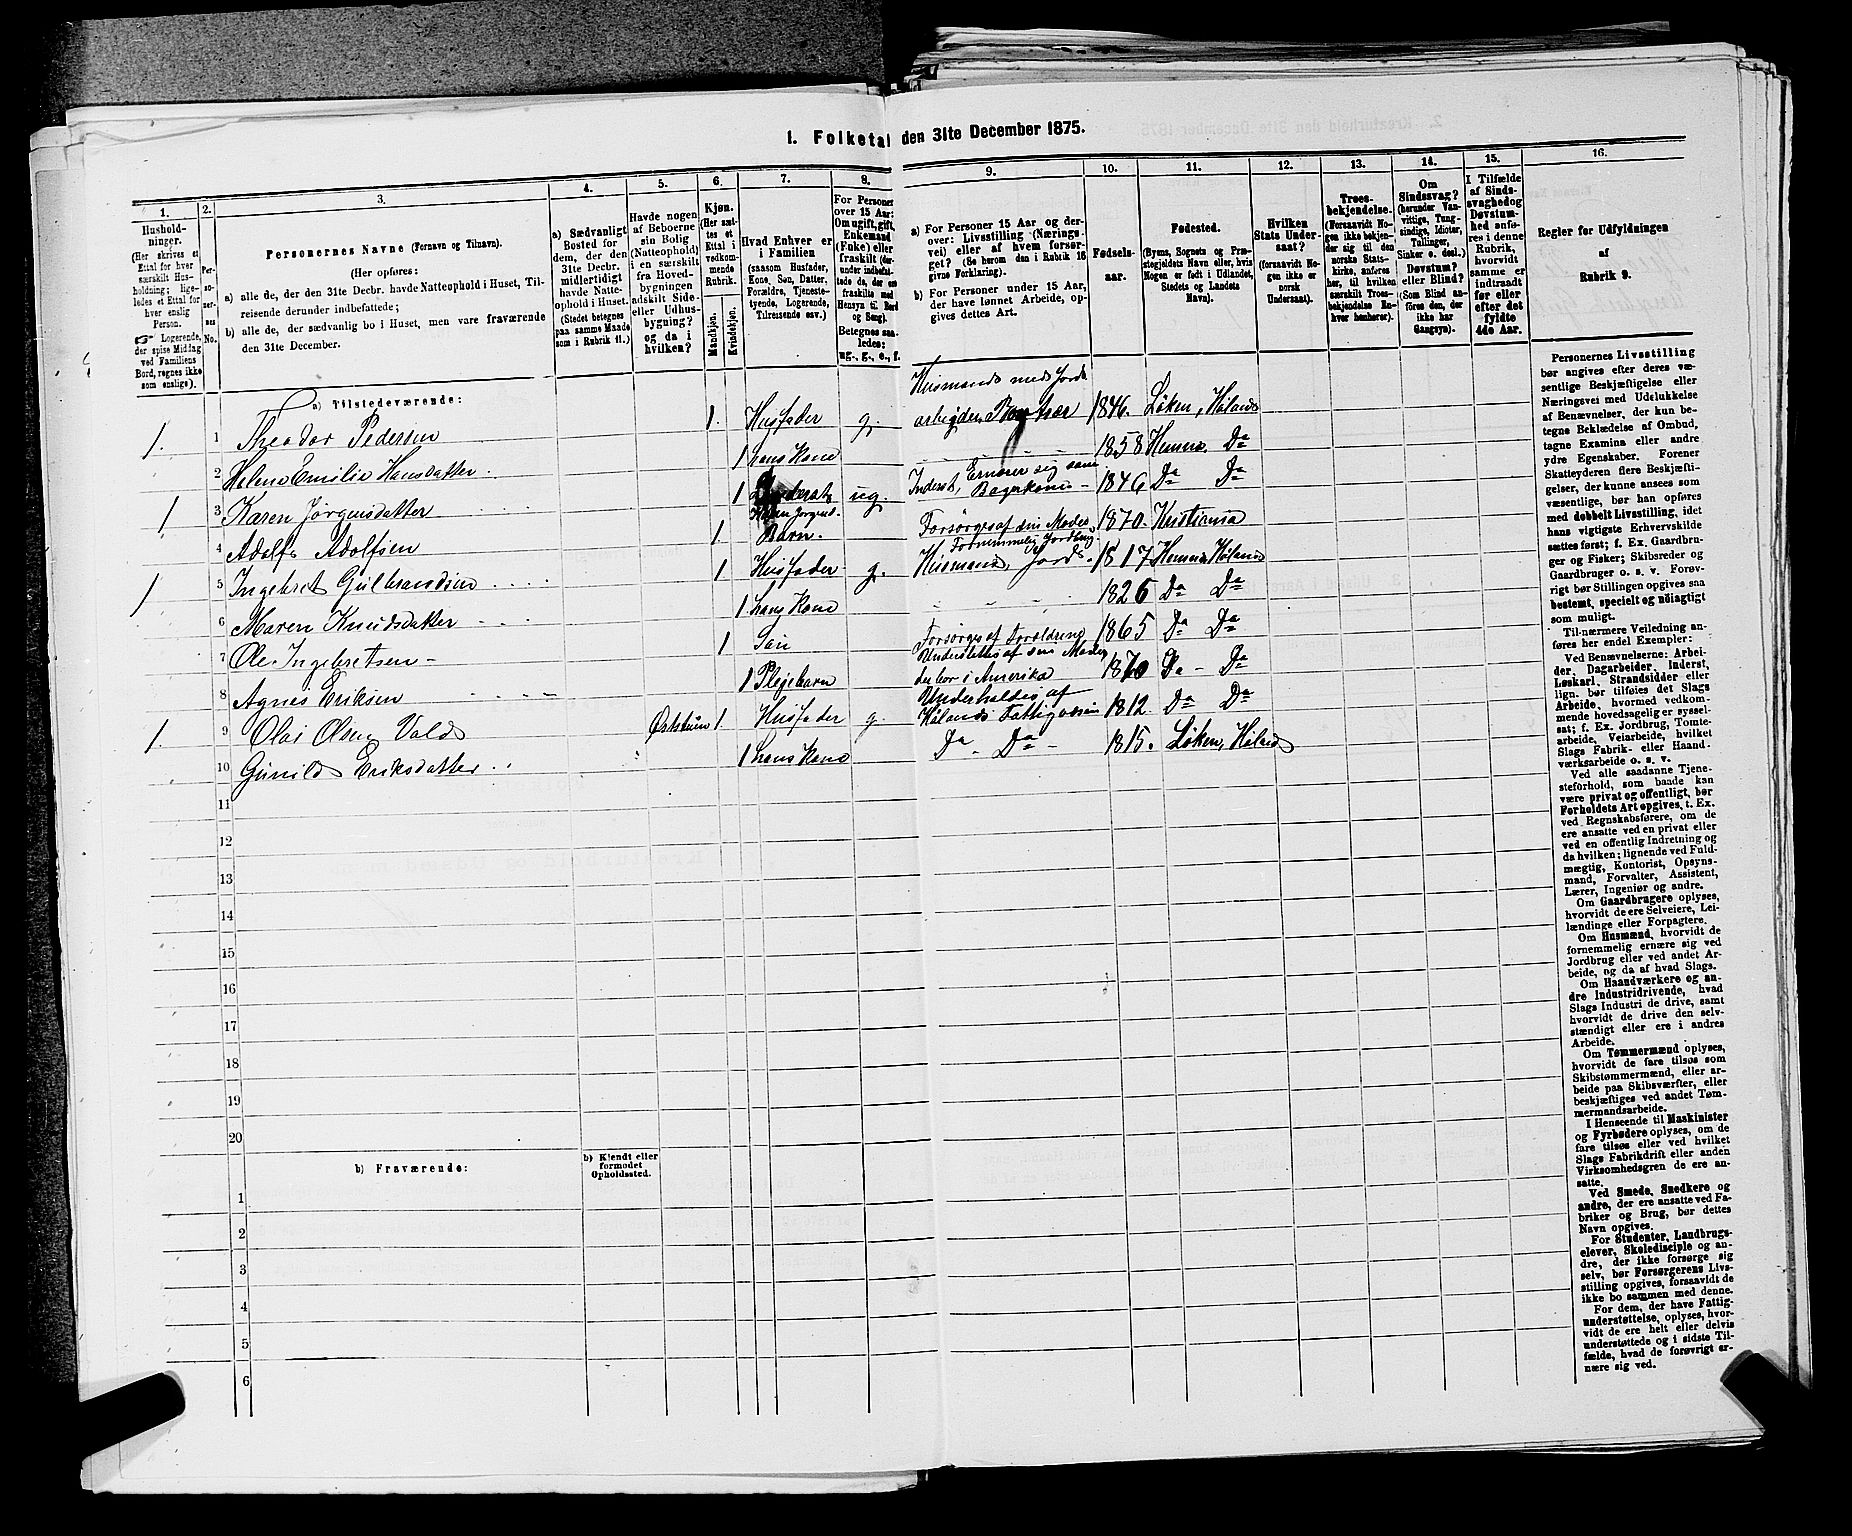 1. Folketal den 31te December 1875.
1.
2.
3.
4.
5.
6.
7.
8.
9.
10.
11.
12.
13.
14.
15.
16.
Hushold-
ninger.
(Her skrives et
Ettal for hver
særskilt Hus-
holdning; lige-
ledes et Ettal for
hver enslig
Person.
☞ Logerende,
der spise Middag
ved Familiens
Bord, regnes ikke
som enslige).
Per-
so-
ner-
nes
No.
Personernes Navne (Fornavn og Tilnavn).
(Her opføres:
a) alle de, der den 31te Decbr. havde Natteophold i Huset, Til-
reisende derunder indbefattede;
b) alle de, der sædvanlig bo i Huset, men vare fraværende
den 31te December.
a) Sædvanligt
Bosted for
dem, der den
31te Decbr.
midlertidigt
havde Natte-
ophold i Huset.
(Stedet betegnes
paa samme Maade
som i Rubrik 11.)
Havde nogen
af Beboerne
sin Bolig
(Natteophold)
i en særskilt
fra Hoved-
bygningen
adskilt Side-
eller Udhus-
bygning?
og da i
hvilken?
Kjøn.
(Her sæt-
tes et
Ettal i
vedkom-
mende
Rubrik.
Mandkjøn.
Kvindekjøn.
Hvad Enhver er
i Familien
(saasom Husfader,
Kone, Søn, Datter,
Forældre, Tjeneste-
tyende, Logerende,
Tilreisende osv.)
For Personer
over 15 Aar:
Om ugift, gift,
Enkemand
(Enke) eller
fraskilt (der-
under indbefat-
tede de, der ere
fraskilte med
Hensyn til Bord
og Seng).
Betegnes saa-
ledes:
ug., g., e., f.
a) For Personer 15 Aar og der-
over: Livsstilling (Nærings-
vei) eller af hvem forsør-
get? (Se herom den i Rubrik 16
givne Forklaring).
b) For Personer under 15 Aar,
der have lønnet Arbeide, op-
gives dettes Art.
Fødsels-
aar.
Fødested.
(Byens, Sognets og Præ-
stegjeldets Navn eller, hvis
Nogen er født i Udlandet,
Stedets og Landets
Navn).
Hvilken
Stats Under-
saat?
(forsaavidt No-
gen ikke er
norsk
Undersaat).
Troes-
bekjendelse.
(Forsaavidt No-
gen ikke bekjen-
der sig til den
norske Stats-
kirke, anføres
her, til hvilken
særskilt Troes-
bekjendelse En-
hver henhører).
Om
Sindssvag?
(herunder Van-
vittige, Tung-
sindige, Idioter,
Tullinger,
Sinker o. desl.)
Døvstum?
eller Blind?
(Som Blind an-
føres den, der
ikke har
Gangsyn).
I Tilfælde
af Sinds-
svaghed og
Døvstum-
hed anfø-
res i denne
Rubrik,
hvorvidt
samme er
indtraadt
før eller
efter det
fyldte
4de Aar.
Regler for Udfyldningen
af
Rubrik 9.
a) Tilstedeværende:
1. 1 Theodor Pedersen 1. Husfader g. Husmand med Jord arbeider 1846. Løken, Høland
2 Helene Emilie Hansdatter. 1 hans Kone 1858 Hemnes. Da
1 3 Karen Jørgensdatter 1 Inderst ug. Inderst, Ernærer sig som Bagerkone 1846 Da Da
4 Adolf Adolfsen 1 Karen Jørgensd. Barn. Forsørges af sin Moder 1870. Kristiania
1 5 Ingebret Gulbrandsen 1 Husfader g. Husmand, Jord. Fornemmelig Jordbrug 1817 Hemnes Høland
6 Maren Knudsdatter 1 hans Kone 1826 Da Da
7 Ole Ingebretsen 1 Søn Forsørges af Forældrene 1865 Da Da
8 Agnes Eriksen 1 Plejebarn Understøttes af sin Moder der bor i Amerika 1870 Da Da
1. 9 Olai Olsen Vold Øststuen 1 Husfader g. Underholdes af Hølands Fattigvæsen 1812. Da Da
10 Gunild Eriksdatter 1 hans Kone Da Da 1815. Løken, Høland
11
12
13
14
15
16
17
18
19
20
b) Fraværende:
b) Kjendt eller
formodet
Opholdssted.
1
2
3
4
5
6
Personernes Livsstilling
bør angives efter deres væ-
sentlige Beskjæftigelse eller
Næringsvei med Udelukkelse
af Benævnelser, der kun be-
tegne Beklædelse af Ombud,
tagne Examina eller andre
ydre Egenskaber. Forener
Skatteyderen flere Beskjæfti-
gelser, der kunne ansees som
væsentlige, bør han opføres
med dobbelt Livsstilling, idet
hans vigtigste Erhvervskilde
sættes først; f. Ex. Gaardbru-
ger og Fisker; Skibsreder og
Gaardbruger o. s. v. Forøv-
rigt bør Stillingen opgives saa
bestemt, specielt og nøiagtigt
som muligt.
Til nærmere Veiledning an-
føres her endel Exempler:
Ved Benævnelserne: Arbei-
der, Dagarbeider, Inderst,
Løskarl, Strandsidder eller
lign. bør tilføies det Slags
Arbeide, hvormed vedkom-
mende hovedsagelig er syssel-
sat; f. Ex. Jordbrug, Tomte-
arbeide, Veiarbeide, hvilket
Slags Fabrik- eller Haand-
værksarbeide o. s. v.
Ved alle saadanne Tjene-
steforhold, som baade kan
være privat og offentligt, bør
Forholdets Art opgives, t. Ex.
ved Regnskabsførere, om de
ere ansatte ved en privat eller
ved en offentlig Indretning og
da hvilken; lignende ved Fuld-
mægtig, Kontorist, Opsyns-
mand, Forvalter, Assistent,
Lærer, Ingeniør og andre.
Om Gaardbrugere oplyses,
hvorvidt de ere Selveiere, Lei-
lændinge eller Forpagtere.
Om Husmænd, hvorvidt de
fornemmelig ernære sig ved
Jordbrug eller ved andet Ar-
beide, og da af hvad Slags.
Om Haandværkere og an-
dre Industridrivende, hvad
Slags Industri de drive, samt
hvorvidt de drive den selv-
stændigt eller ere i andres
Arbeide.
Om Tømmermænd oplyses,
hvorvidt de fare tilsøs som
Skibstømmermænd, eller ar-
beide paa Skibsværfter, eller
beskjæftiges ved andet Tøm-
mermandsarbeide.
I Henseende til Maskinister
og Fyrbødere oplyses, om de
fare tilsøs eller ved hvilket
Slags Fabrikdrift eller anden
Virksomhedsgren de ere an-
satte.
Ved Smede, Snedkere og
andre, der ere ansatte ved Fa-
briker og Brug, bør dettes
Navn opgives.
For Studenter, Landbrugs-
elever, Skoledisciple og an-
dre, der ikke forsørge sig
selv, bør Forsørgerens Livs-
stilling opgives, forsaavidt de
ikke bo sammen med denne.
For dem, der have Fattig-
understøttelse, oplyses, hvor-
vidt de ere helt eller delvis
understøttede og i sidste Til-
fælde, hvad de forøvrigt er-
nære sig ved.